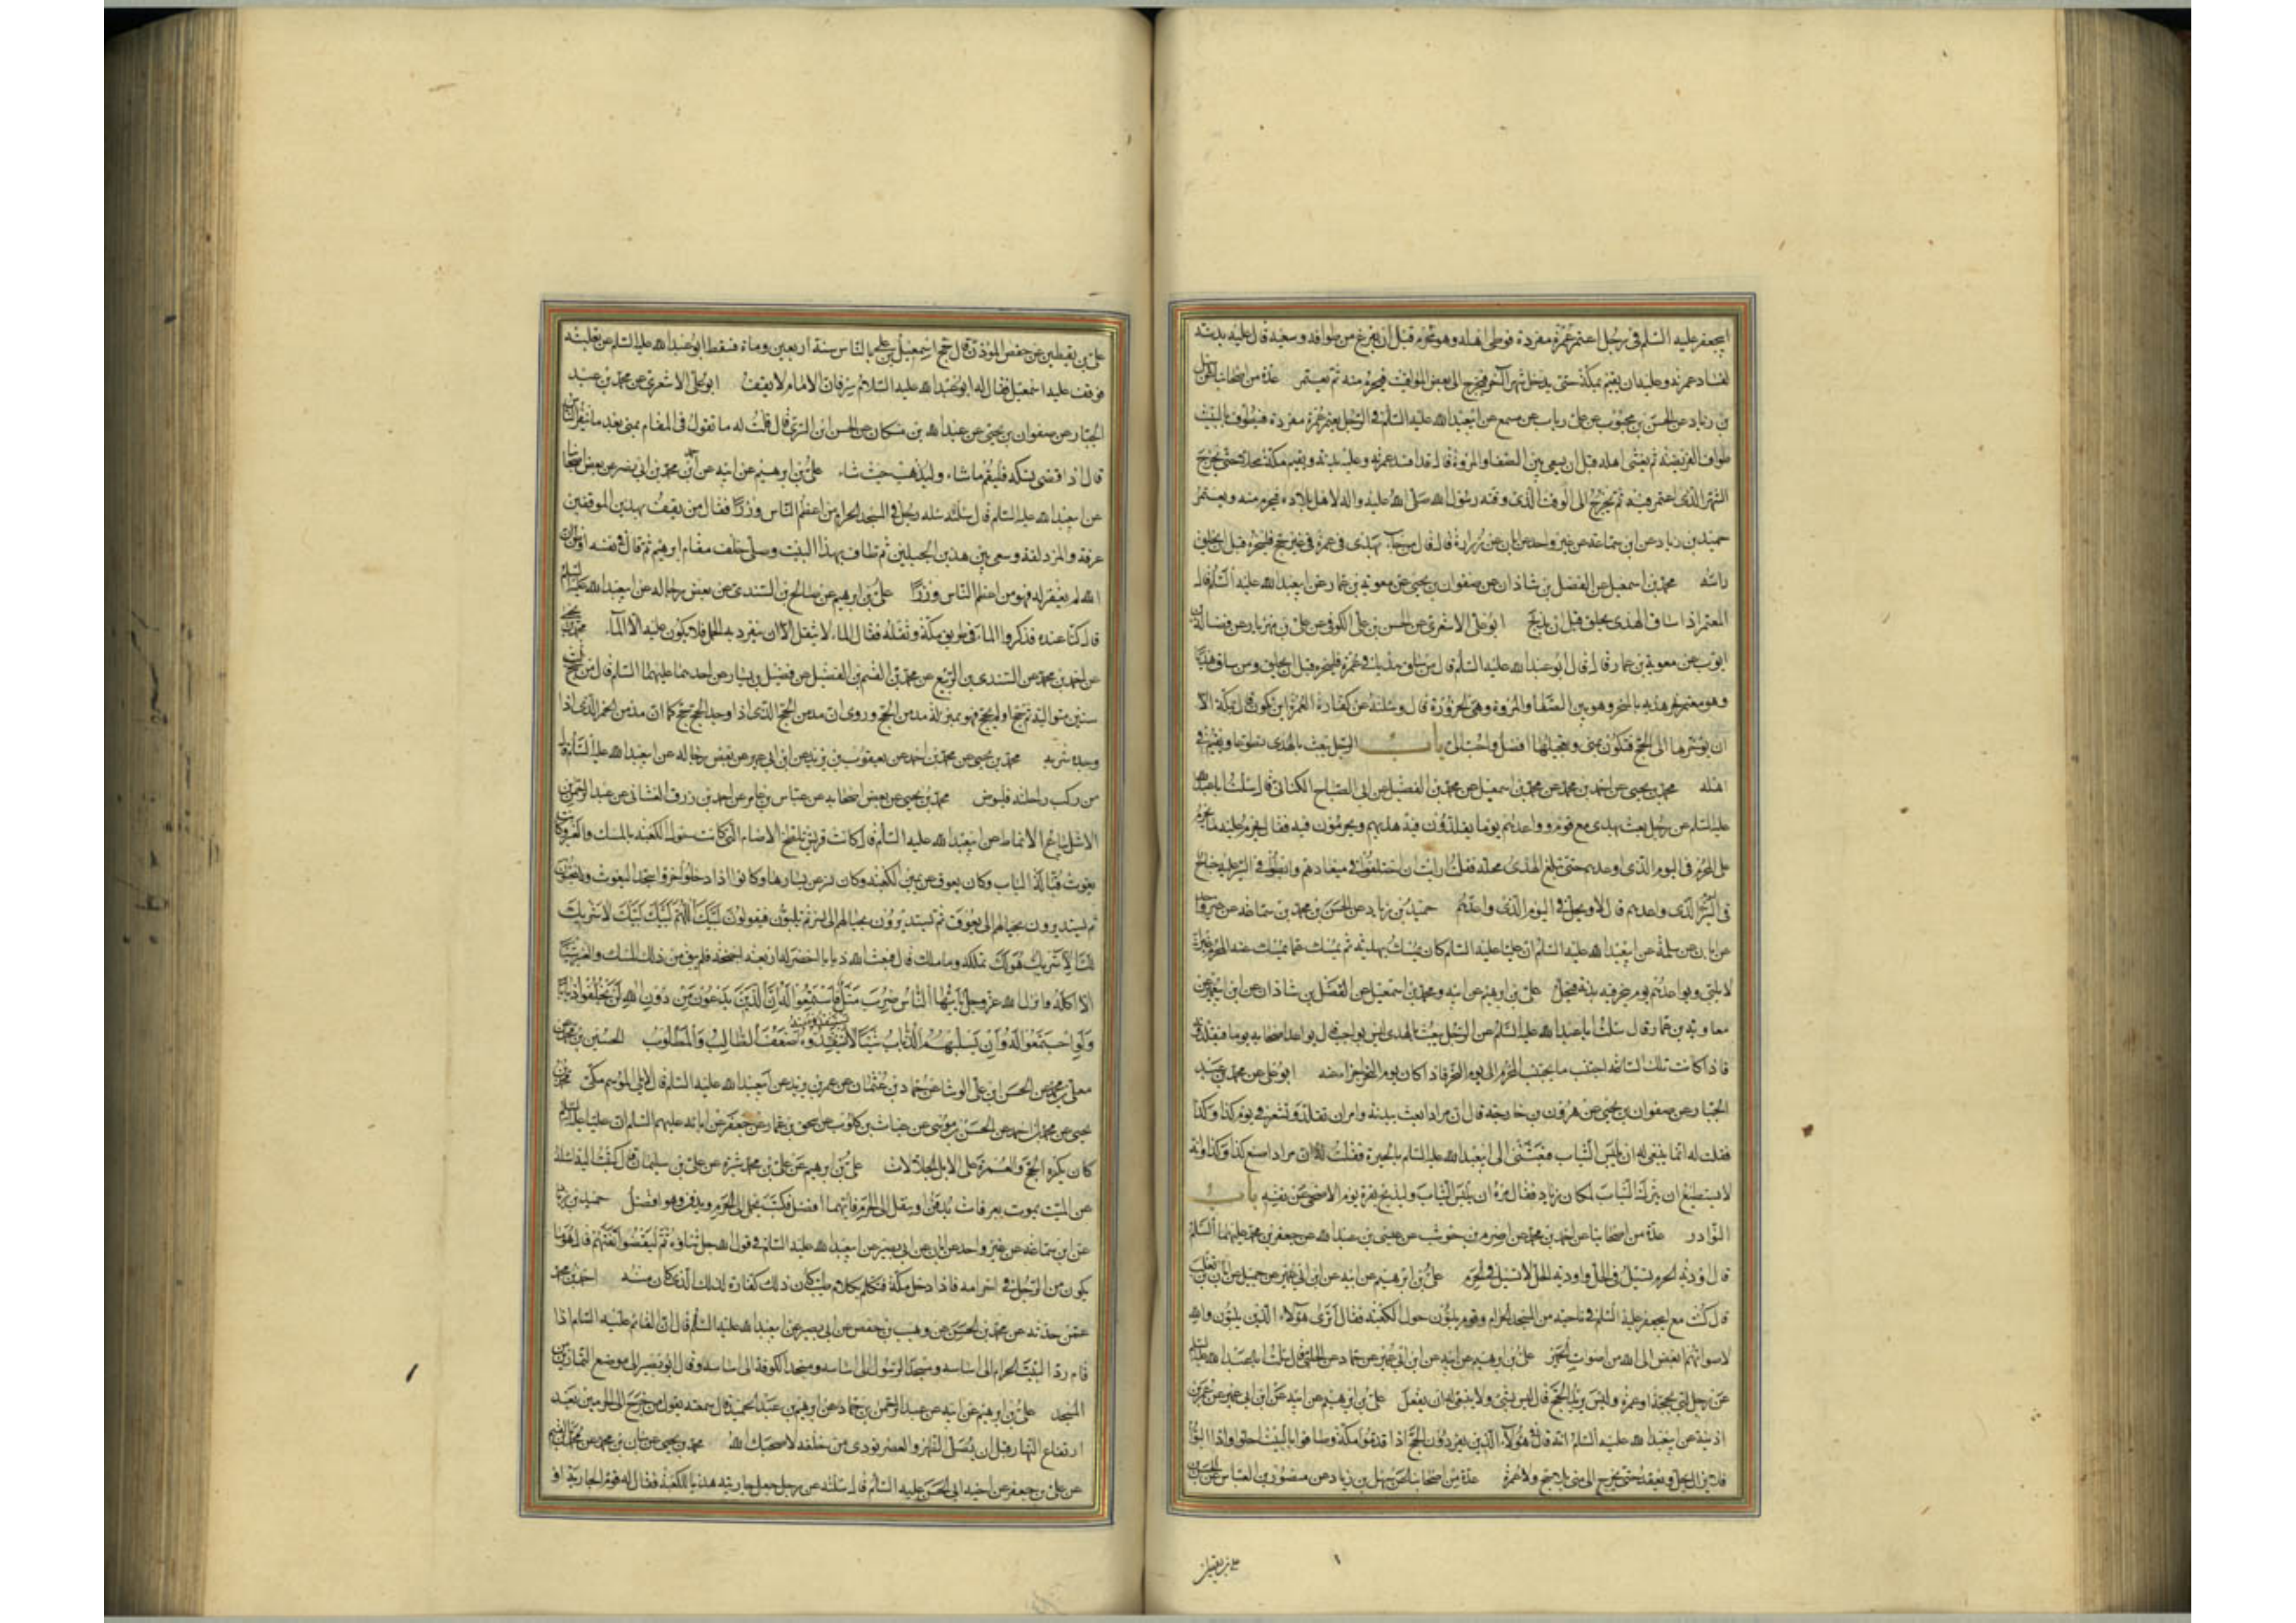 ابي جعفر عليه السلم في رجل اعتمر عمرة مفردة فوطى اهله وهو محرم قبل ان يفرغ من طوافه وسعيه قال عليه بدنة
لفساد عمرته وعليه ان يقيم بمكة حتى يدخل شهر آخر فيخرج الى بعض المواقيت فيحرم منه ثم يعتمر عدة من اصحابنا عن سهل
بن زياد عن الحسن بن محبوب عن علي بن رياب عن مسمع عن ابيعبدالله عليه السلم في الرجل يعتمر عمرة مفردة فيطوف بالبيت
طواف الفريضة ثم يغشى اهله قبل ان يسعى بين الصفا والمروة قال قد افسد عمرته وعليه بدنة ويقيم بمكة محلا حتى يخرج
الشهر الذي اعتمر فيه ثم يخرج الى الوقت الذي وقته رسول الله صلى الله عليه واله لاهل بلاده فيحرم منه ويعتمر
حميد بن زياد عن ابن سماعة عن غير واحد عن ابان عن زرارة قال قال من جآء بهدي في عمرة في غير حج فلينحره قبل ان يحلق
راسه محمد بن اسمعيل عن الفضل بن شاذان عن صفوان بن يحيى عن معوية بن عمار عن ابيعبدالله عليه السلم قال
المعتمر اذا ساق الهدي يحلق قبل ان يذبح ابو علي الاشعري عن الحسن بن علي الكوفي عن علي بن مهزيار عن فضالة بن
ايوب عن معوية بن عمار قال قال ابو عبدالله عليه السلم قال من ساق هديا في عمرة فلينحره قبل ان يحلق ومن ساق هديا
وهو معتمر نحر هديه بالمنحر وهو بين الصفا والمروة وهي الحزورة قال وسئلته عن كفارة العمرة اين تكون قال بمكة الا
ان يؤخرها الى الحج فتكون بمنى وتعجيلها افضل واحب الي باب الرجل يبعث بالهدي تطوعا ويقيم في
اهله محمد بن يحيى عن احمد بن محمد عن محمد بن اسمعيل عن محمد بن الفضيل عن ابي الصباح الكناني قال سئلت ابا عبدالله
عليه السلم عن رجل بعث بهدي مع قوم وواعدهم يوما يقلدون فيه هديهم ويحرمون فيه فقال يحرم عليه ما يحرم
على المحرم في اليوم الذي واعدهم حتى يبلغ الهدي محله فقلت ارايت ان اختلفوا في ميعادهم وابطؤا في السير عليه جناح
في اليوم الذي واعدهم قال لا ويحل في اليوم الذي واعدهم حميد بن زياد عن الحسن بن محمد بن سماعة عن غير واحد
عن ابان عن سلمة عن ابيعبدالله عليه السلم ان عليا عليه السلم كان يبعث بهديه ثم يمسك عما يمسك عنه المحرم غير انه
لا يلبي ويواعدهم يوم ينحر فيه بدنة فيحل علي بن ابرهيم عن ابيه ومحمد بن اسمعيل عن الفضل بن شاذان عن ابن ابيعمير عن
معاوية بن عمار قال سئلت اباعبدالله عليه السلم عن الرجل يبعث بالهدي ليس بواجب قال يواعد اصحابه يوما فيقلدونه
فاذا كانت تلك الساعة اجتنب ما يجتنب المحرم الى يوم النحر فاذا كان يوم النحر اجزا عنه ابو علي عن محمد بن عبد
الجبار عن صفوان بن يحيى عن هرون بن خارجة قال ان مرادا بعث ببدنة وامر ان تقلد وتشعر في يوم كذا وكذا
فقلت له انما ينبغي له ان لا يلبس الثياب فبعثني الى ابيعبدالله عليه السلم بالحيرة فقلت له ان مرادا صنع كذا وكذا وانه
لا يستطيع ان يترك الثياب لمكان زياد فقال مره ان يلبس الثياب وليذبح بقرة يوم الاضحى عن نفسه باب
النوادر عدة من اصحابنا عن احمد بن محمد عن اصرم بن حوشب عن عيسى بن عبدالله عن جعفر بن محمد عليهما السلم
قال اودية الحرم تسيل في الحل واودية الحل لا تسيل في الحرم علي بن ابرهيم عن ابيه عن ابن ابي عمير عن جميل عن ابان بن تغلب
قال كنت مع ابيجعفر عليه السلم في ناحية من المسجد الحرام وقوم يلبون حول الكعبة فقال اترى هؤلاء الذين يلبون والله
لاصواتهم ابغض الى الله من اصوات الحمير علي بن ابرهيم عن ابيه عن ابن ابي عمير عن حماد عن الحلبي قال سئلت ابا عبدالله عليه السلم
عن رجل لبى بحجة او عمرة وليس يريد الحج قال ليس بشيء ولا ينبغي له ان يفعل علي بن ابرهيم عن ابيه عن ابن ابي عمير عن عمر بن
اذينة عن ابيعبدالله عليه السلم انه قال في هؤلاء الذين يفردون الحج اذا قدموا مكة وطافوا بالبيت احلوا واذا لبوا
احرموا فلا يزال يحل ويعقد حتى يخرج الى منى بلا حج ولا عمرة عدة من اصحابنا عن سهل بن زياد عن منصور بن العباس عن الحسن بن
علي بن يقطين
علي بن يقطين عن حفص المؤذن قال حج اسمعيل بن علي بالناس سنة اربعين ومائة فسقط ابو عبدالله عليه السلم عن بغلته
فوقف عليه اسمعيل فقال له ابو عبدالله عليه السلام سر فان الامام لا يقف ابو علي الاشعري عن محمد بن عبد
الجبار عن صفوان بن يحيى عن عبدالله بن مسكان عن الحسن بن السري قال قلت له ما تقول في المقام بمنى بعد ما ينفر الناس
قال اذا قضى نسكه فليقم ما شاء وليذهب حيث شاء علي بن ابرهيم عن ابيه عن احمد بن محمد بن ابي نصر عن بعض اصحابنا
عن ابيعبدالله عليه السلم قال سئله رجل في المسجد الحرام من اعظم الناس وزرا فقال من يقف بهذين الموقفين
عرفة والمزدلفة وسعى بين هذين الجبلين ثم طاف بهذا البيت وصلى خلف مقام ابرهيم ثم قال في نفسه او ظن ان
الله لم يغفر له فهو من اعظم الناس وزرا علي بن ابرهيم عن صالح بن السندي عن بعض رجاله عن ابيعبدالله عليه السلم
قال كنا عنده فذكروا الماء في طريق مكة وثقله فقال الماء لا يثقل الا ان ينفرد به الجمل فلا يكون عليه الا المآء محمد بن يحيى
عن احمد بن محمد عن السندي بن الربيع عن محمد بن القسم بن الفضيل عن فضيل بن يسار عن احدهما عليهما السلم قال من حج ثلث
سنين متوالية ثم حج او لم يحج فهو بمنزلة مدمن الحج وروى ان مدمن الحج الذي اذا وجد الحج حج كما ان مدمن الخمر الذي اذا
وجده شربه محمد بن يحيى عن محمد بن احمد عن يعقوب بن يزيد عن ابن ابي عمير عن بعض رجاله عن ابيعبدالله عليه السلم قال
من ركب راحلته فليوص محمد بن يحيى عن بعض اصحابه عن عباس بن عامر عن احمد بن رزق الغشاني عن عبد الرحمن بن
الاشل بياع الانماط عن ابيعبدالله عليه السلم قال كانت قريش تلطخ الاصنام التي كانت حول الكعبة بالمسك والعنبر وكان
يغوث قبالة الباب وكان يعوق عن يمين الكعبة وكان نسر عن يسارها وكانوا اذا دخلوا خروا سجدا ليغوث ولا ينحنون
ثم يستديرون بحيالهم الى يعوق ثم يستديرون بحيالهم الى نسر ثم يلبون فيقولون لبيك اللهم لبيك لبيك لا شريك
لك الا شريك هو لك تملكه وما ملك قال فبعث الله ذبابا اخضر له اربعة اجنحة فلم يبق من ذلك المسك والعنبر شيئا
الا اكله وانزل الله عز وجل يا ايها الناس ضرب مثل فاستمعوا له ان الذين تدعون من دون الله لن يخلقوا ذبابا
ولو اجتمعوا له وان يسلبهم الذباب شيئا لا يستنقذوه منه ضعف الطالب والمطلوب الحسين بن محمد عن
معلى بن محمد عن الحسن بن علي الوشا عن حماد بن عثمان عن عمر بن يزيد عن ابيعبدالله عليه السلم قال لا يلي الموسم مكي محمد بن
يحيى عن محمد بن احمد عن الحسن بن موسى عن غياث بن كلوب عن اسحق بن عمار عن جعفر عن ابائه عليهم السلم ان عليا عليه السلم
كان يكره الحج والعمرة على الابل الجلالات علي بن ابرهيم عن علي بن محمد شيرة عن علي بن سليمان قال كتبت اليه اسئله
عن الميت يموت بعرفات يدفن او ينقل الى الحرم فايهما افضل فكتب يحمل الى الحرم ويدفن وهو افضل حميد بن زياد
عن ابن سماعة عن غير واحد عن ابان عن ابي بصير عن ابيعبدالله عليه السلم في قول الله جل ثناؤه ثم ليقضوا تفثهم قال هو ما
يكون من الرجل في احرامه فاذا دخل مكة فتكلم بكلام طيب كان ذلك كفارة لذلك الذي كان منه احمد بن محمد
عمن حدثه عن محمد بن الحسين عن وهيب بن حفص عن ابي بصير عن ابيعبدالله عليه السلم قال ان القائم عليه السلم اذا
قام رد البيت الحرام الى اساسه ومسجد الرسول الى اساسه ومسجد الكوفة الى اساسه وقال ابو بصير الى موضع التمارين من
المسجد علي بن ابرهيم عن ابيه عن عبد الرحمن بن حماد عن ابرهيم بن عبد الحميد قال سمعته يقول من خرج من الحرمين بعد
ارتفاع النهار قبل ان يصلي الظهر والعصر نودي من خلفه لا صحبك الله محمد بن يحيى عن بنان بن محمد عن موسى بن القسم
عن علي بن جعفر عن اخيه ابي الحسن عليه السلم قال سئلته عن رجل جعل جاريته هديا للكعبة فقال له قوم الجارية او